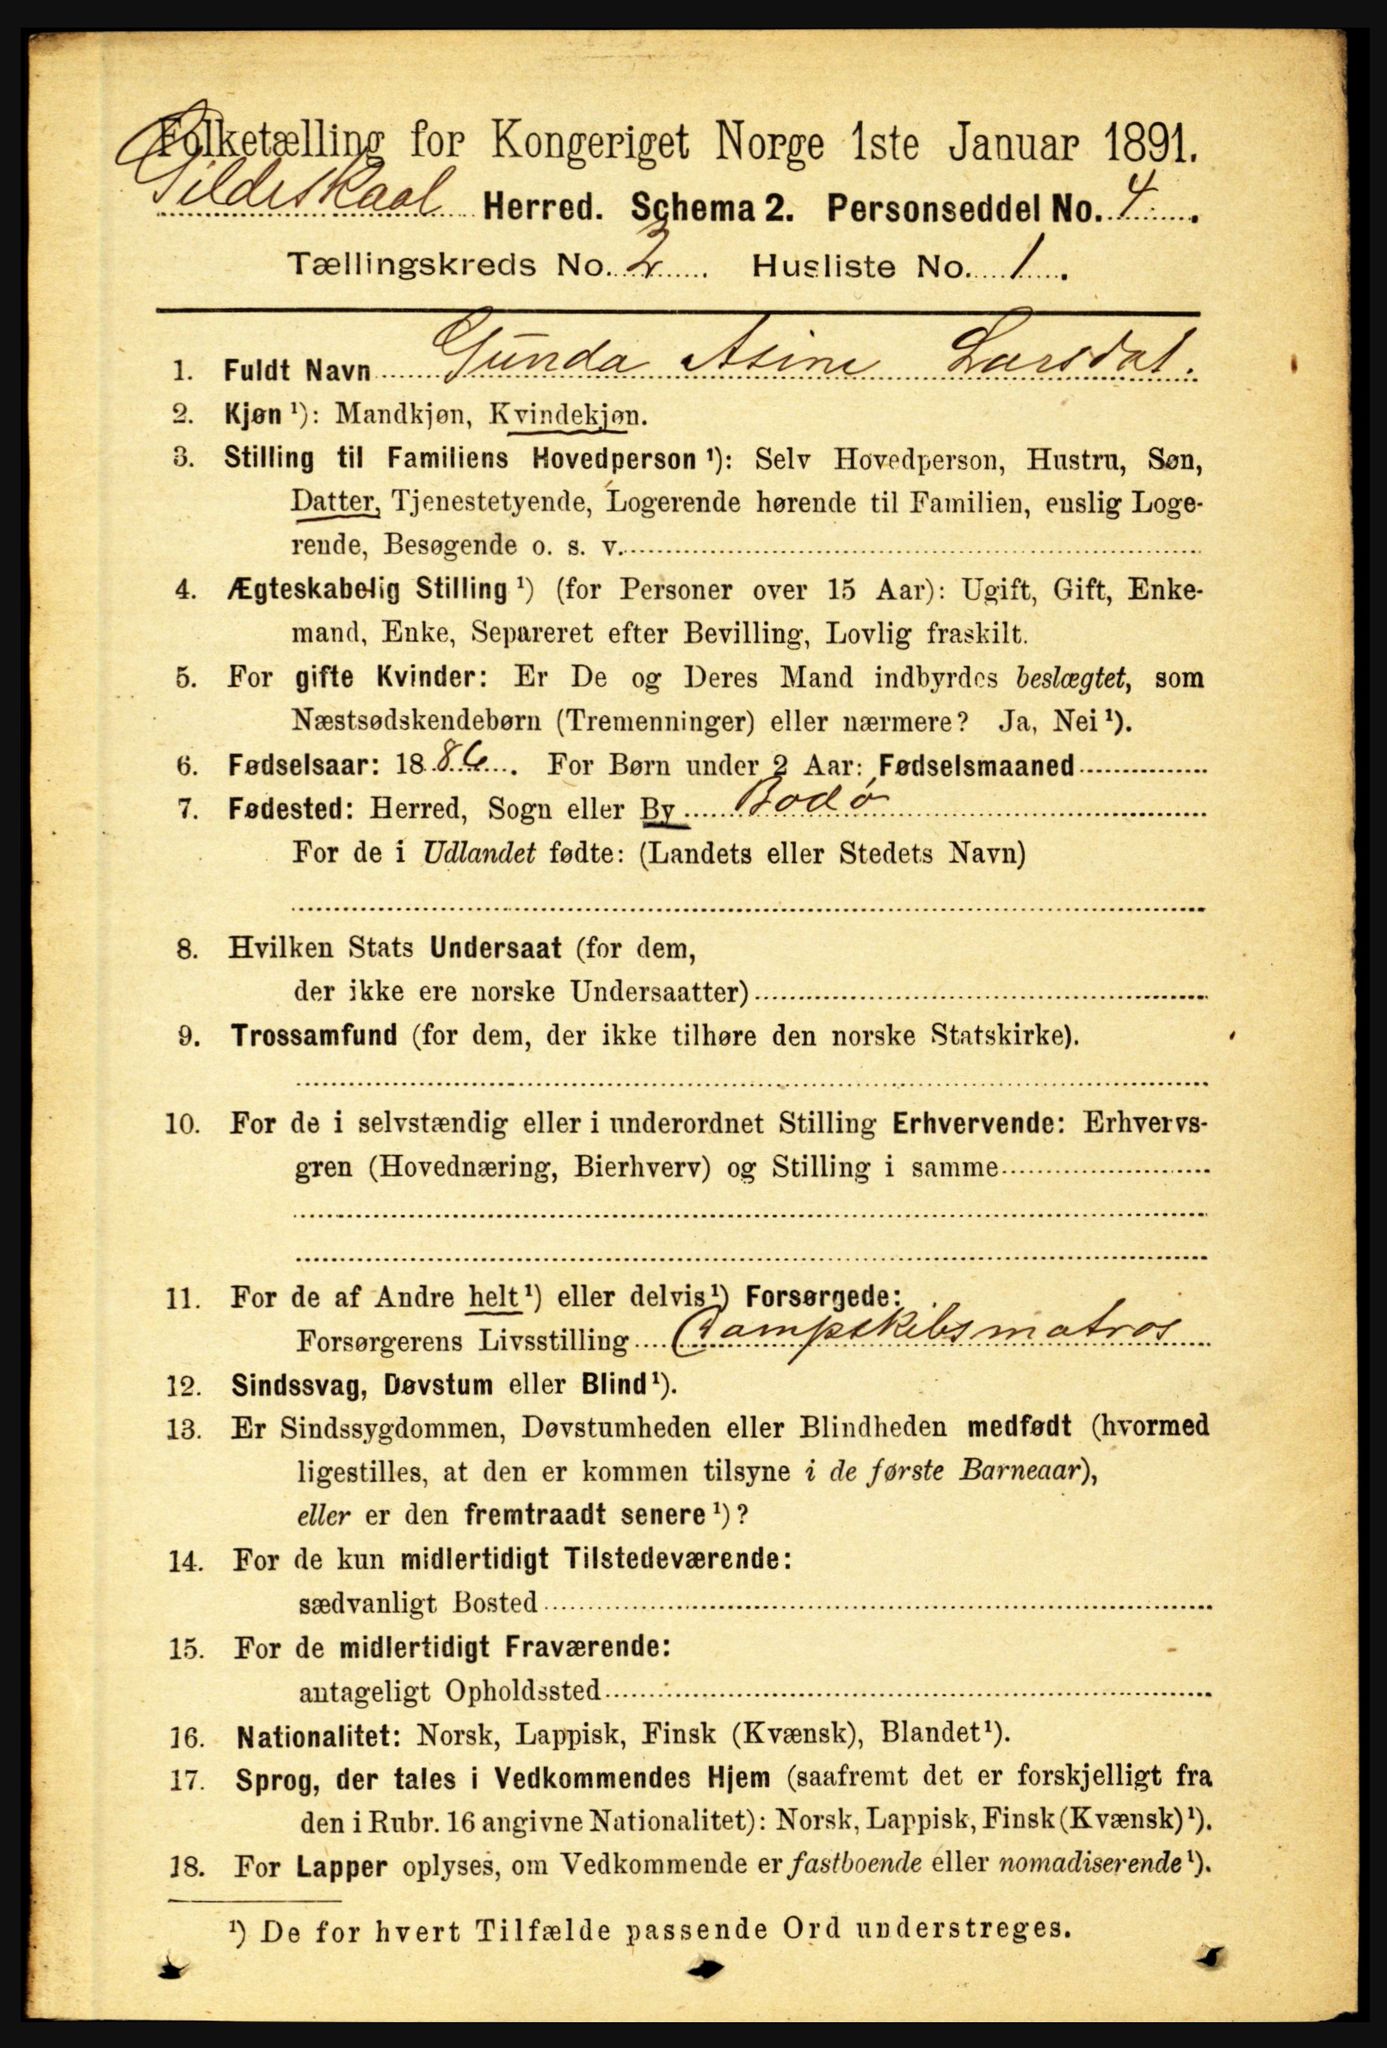 Folketælling for Kongeriget Norge 1ste Januar 1891.
Gildeskaal Herred. Schema 2. Personseddel No. 4.
Tællingskreds No. 2. Husliste No. 1.
1. Fuldt Navn Gunda Asine Larsdat.
2. Kjøn ¹): Mandkjøn, Kvindekjøn.
3. Stilling til Familiens Hovedperson ¹): Selv Hovedperson, Hustru, Søn,
Datter, Tjenestetyende, Logerende hørende til Familien, enslig Loge-
rende, Besøgende o. s. v.
4. Ægteskabelig Stilling ¹) (for Personer over 15 Aar): Ugift, Gift, Enke-
mand, Enke, Separeret efter Bevilling, Lovlig fraskilt.
5. For gifte Kvinder: Er De og Deres Mand indbyrdes beslægtet, som
Næstsødskendebørn (Tremenninger) eller nærmere? Ja, Nei ¹).
6. Fødselsaar: 1886. For Børn under 2 Aar: Fødselsmaaned
7. Fødested: Herred, Sogn eller By Bodø
For de i Udlandet fødte: (Landets eller Stedets Navn)
8. Hvilken Stats Undersaat (for dem,
der ikke ere norske Undersaatter)
9. Trossamfund (for dem, der ikke tilhøre den norske Statskirke).
10. For de i selvstændig eller i underordnet Stilling Erhvervende: Erhvervs-
gren (Hovednæring, Bierhverv) og Stilling i samme
11. For de af Andre helt ¹) eller delvis ¹) Forsørgede:
Forsørgerens Livsstilling Dampskibsmatros
12. Sindssvag, Døvstum eller Blind ¹).
13. Er Sindssygdommen, Døvstumheden eller Blindheden medfødt (hvormed
ligestilles, at den er kommen tilsyne i de første Barneaar),
eller er den fremtraadt senere ¹)?
14. For de kun midlertidigt Tilstedeværende:
sædvanligt Bosted
15. For de midlertidigt Fraværende:
antageligt Opholdssted
16. Nationalitet: Norsk, Lappisk, Finsk (Kvænsk), Blandet ¹).
17. Sprog, der tales i Vedkommendes Hjem (saafremt det er forskjelligt fra
den i Rubr. 16 angivne Nationalitet): Norsk, Lappisk, Finsk (Kvænsk) ¹).
18. For Lapper oplyses, om Vedkommende er fastboende eller nomadiserende ¹).
¹) De for hvert Tilfælde passende Ord understreges.